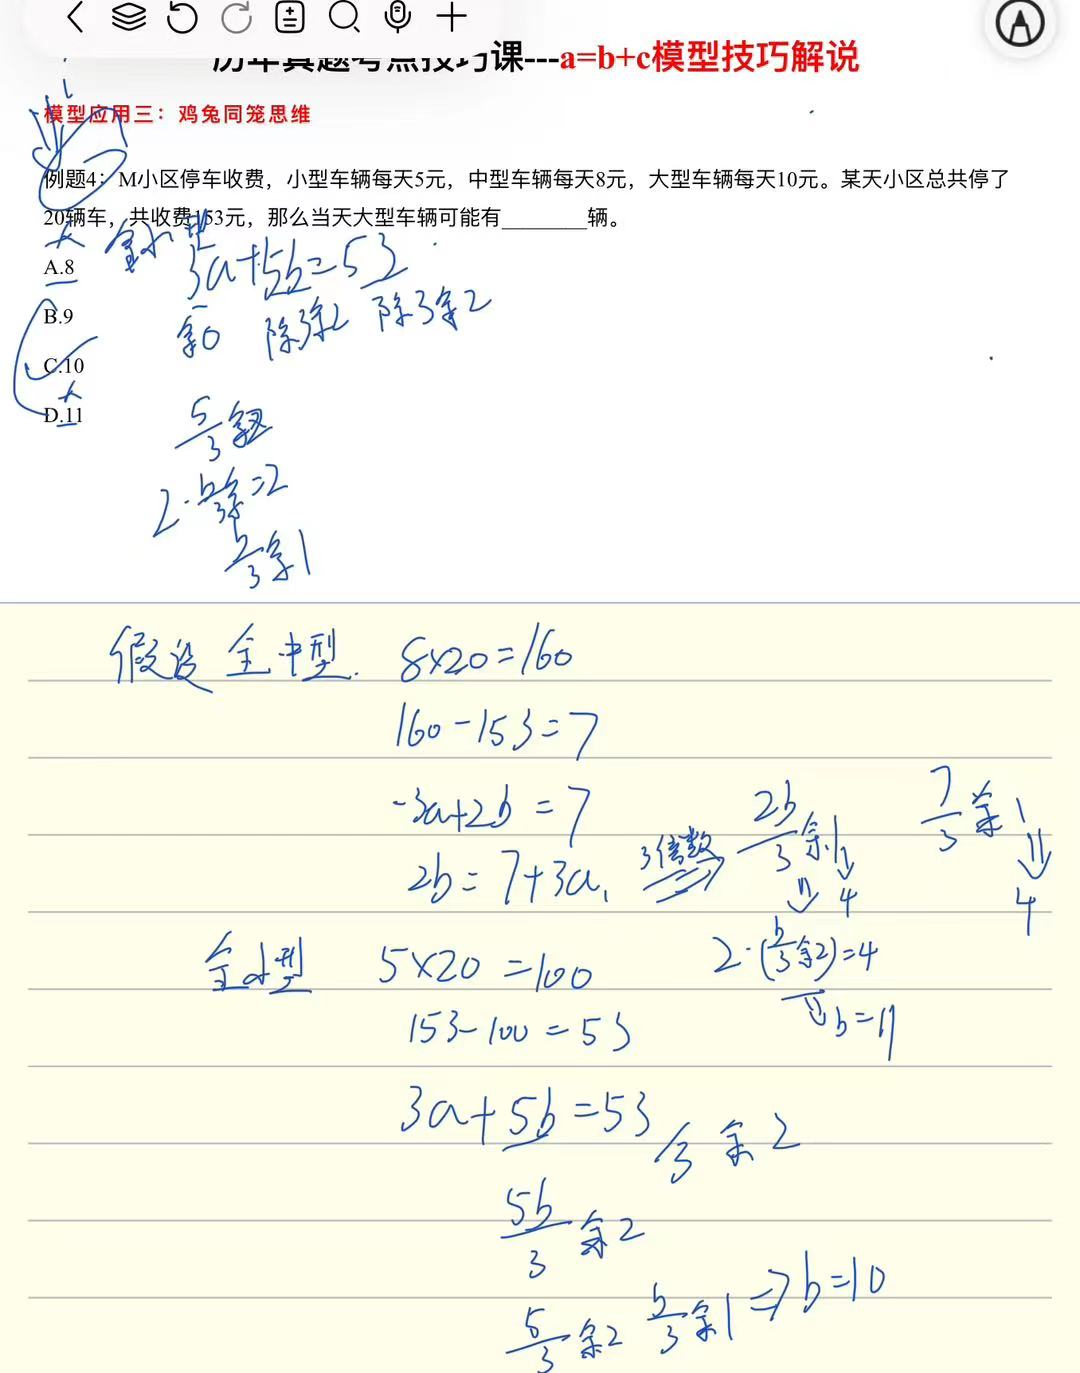 历年真题考点技巧课---a=b+c模型技巧解说
模型应用三：鸡兔同笼思维
例题4：M小区停车收费，小型车辆每天5元，中型车辆每天8元，大型车辆每天10元。某天小区总共停了
20辆车，共收费153元，那么当天大型车辆可能有________辆。
全小型
3a+5b=53
A.8
B.9
余0 除3余2 除3余2
C.10
D.11
5/3余2
2·b/3余=2
b/3余1
假设 全中型. 8×20=160
160-153=7
-3a+2b=7
2b=7+3a, 3倍数 2b/3余1 7/3余1
4 4
2·(b/3余2)=4
b=11
全小型 5×20=100
153-100=53
3a+5b=53
余2
5b/3余2
5/3余2 b/3余1 ⇒ b=10